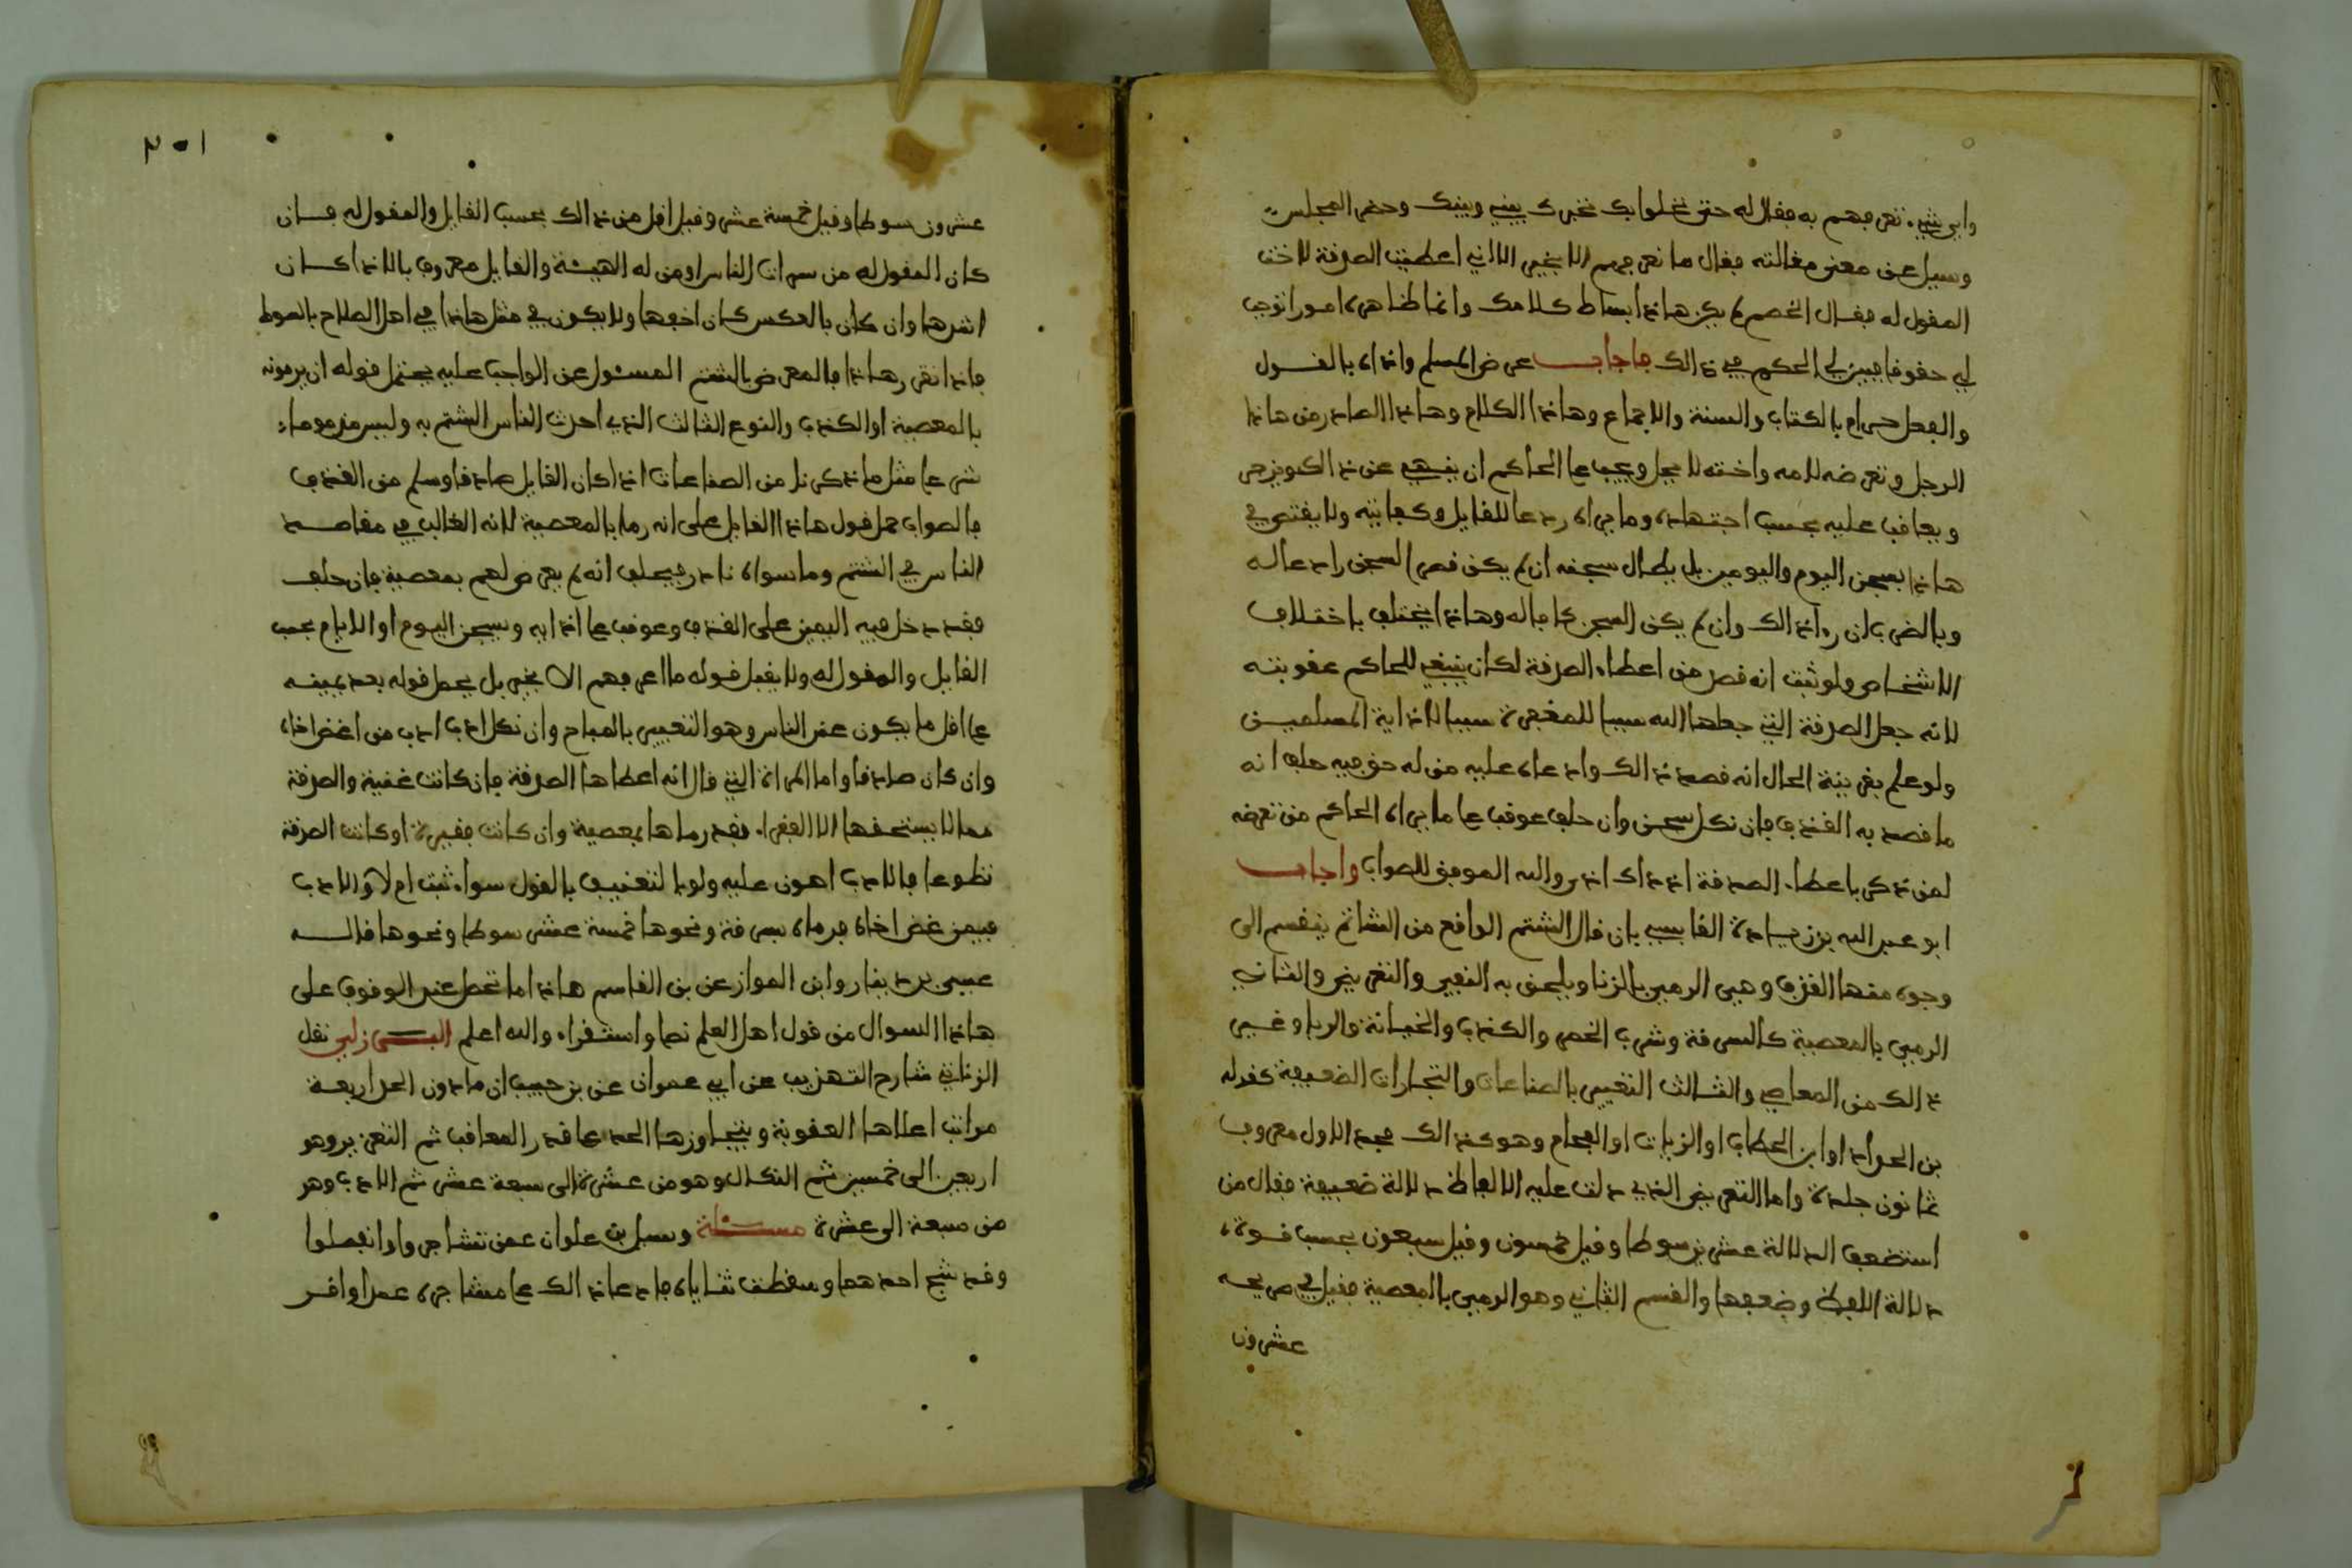 واي شيء تعرفهم به فقال له حتى نخلوا بك نخبرك بيني وبينك وحضر المجلس
وسيل عن معنى مقالته فقال ما نعرفهم الا بخير الا اني اعطيت الصدقة لاخت
المقول له فقال الخصم لم يكن هاذا بساط كلامك وانما ظاهره امورا توجب
لي حقوقا فبين لي الحكم في ذالك فاجاب عرض المسلم واذاه بالقول
والفعل حرام بالكتاب والسنة والاجماع وهاذا الكلام وهاذا الصادر من هاذا
الرجل وتعرضه لامه واخته لا يحل ويجب على الحاكم ان ينهى عن ذالك ويزجر
ويعاقب عليه بحسب اجتهاده وما يراه ردعا للقايل وكفايته ولا يقتصر في
هاذا بسجن اليوم واليومين بل يطال سجنه ان لم يكن قصر السجن رادعا له
وبالضرب ان رءا ذالك وان لم يكن السجن كافا له وهاذا يختلف باختلاف
الاشخاص ولو ثبت انه قصد من اعطاء الصدقة لكان ينبغي للحاكم عقوبته
لانه جعل الصدقة التي جعلها الله سببا للمغفرة سببا لاذاية المسلمين
ولو علم بقرينة الحال انه قصد ذالك وادعاه عليه من له حق فيه حلف انه
ما قصد به القذف فان نكل سجن وان حلف عوقب على ما يراه الحاكم من تعرضه
لمن ذكر باعطاء الصدقة اذ ذاك اذى والله الموفق للصواب واجاب
ابو عبد الله بن زيادة القابسي بان قال الشتم الواقع من الشاتم ينقسم الى
وجوه منها القذف وهي الرمي بالزنا ويلحق به النفي والتعريض والثاني
الرمي بالمعصية كالسرقة وشرب الخمر والكذب والخيانة والربا وغير
ذالك من المعاصي والثالث التعيير بالصناعات والتجارات الضعيفة كقوله
بن الحداد او ابن الحطاب او الزيات او الفحام وهو كذالك فحد الاول معروف
ثمانون جلدة واما التعريض الذي دلت عليه الالفاظ دلالة ضعيفة فقال من
استضعف الدلالة عشرين سوطا وقيل خمسون وقيل سبعون بحسب قوة
دلالة اللفظ وضعفها والقسم الثاني وهو الرمي بالمعصية فقيل في صريحه
عشرون
٢٠١
عشرون سوطا وقيل خمسة عشر وقيل اقل من ذالك بحسب القايل والمقول له فان
كان المقول له من سراة الناس او من له الهيئة والقايل معروف بالاذا كان
اشدها وان كان بالعكس كان اخفها ولا يكون في مثل هاذا في اهل الصلاح بالسوط
فاذا تقرر هاذا فالمعرض بالشتم المسئول عن الواجب عليه يحتمل قوله ان يرمونه
بالمعصية او الكذب والنوع الثالث الذي احدث الناس الشتم به وليس مذموما
شرعا مثل ما ذكرنا من الصناعات اذا كان القايل صادقا وسلم من القذف
فالصواب حمل قول هاذا القايل على انه رما بالمعصية لانه الغالب في مقاصد
الناس في الشتم وما سواه نادر فيحلف انه لم يعرض لهم بمعصية فان حلف
فقد دخل فيه اليمين على القذف وعوقب على اذايه ويسجن اليوم او الايام بحسب
القايل والمقول له ولا يقبل قوله ما اعرفهم الا بخير بل يحمل قوله بعد يمينه
على اقل ما يكون عند الناس وهو التعيير بالمباح وان نكل ادب ادب من اغض اخاه
وان كان صادقا واما المراة التي قال انه اعطاها الصدقة فان كانت غنية والصدقة
مما لا يستحقها الا الفقراء فقد رماها بمعصية وان كانت فقيرة او كانت الصدقة
تطوعا فالادب اهون عليه ولو بالتعنيف بالقول سواء ثبت ام لا والادب
فيمن غض اخاه فرماه بسرقة ونحوها خمسة عشر سوطا ونحوها قاله
عيسى بن دينار وابن المواز عن بن القاسم هاذا ما تحصل عند الوقوف على
هاذا السوال من قول اهل العلم نصا واستقراء والله اعلم البرزلي نقل
الزناتي شارح التهذيب عن ابي عمران عن بن حبيب ان ما دون الحد اربعة
مراتب اعلاها العقوبة ويتجاوزها الحد على قدر المعاقب ثم التعزير وهو
اربعين الى خمسين ثم النكال وهو من عشرة الى سبعة عشر ثم الادب وهو
من سبعة الى عشرة مسئلة وسيل بن علوان عمن تشاجروا وانفصلوا
وقد شج احدهما وسقطت ثناياه فادعا ذالك على مشاجره عمدا واقر